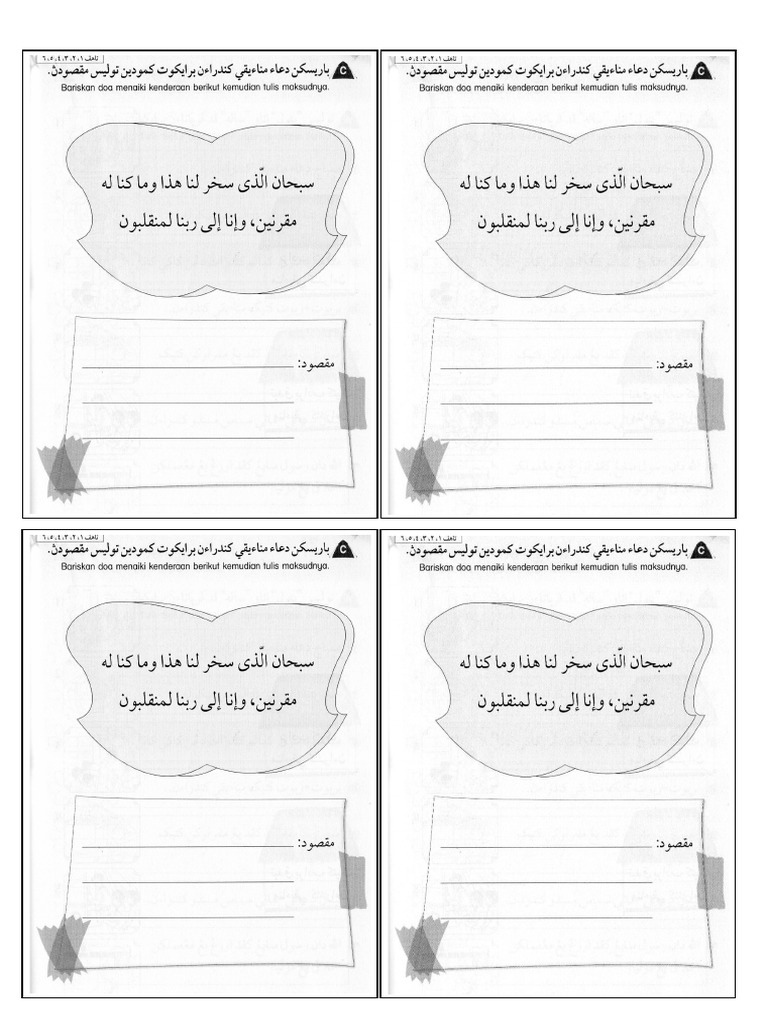 تاهف ١، ٢، ٣، ٤، ٥، ٦
C باريسكن دعاء مناءيقي كندراءن برايكوت كمودين توليس مقصودڽ.
Bariskan doa menaiki kenderaan berikut kemudian tulis maksudnya.
سبحان الّذى سخر لنا هذا وما كنا له
مقرنين، وإنا إلى ربنا لمنقلبون
مقصود:
تاهف ١، ٢، ٣، ٤، ٥، ٦
C باريسكن دعاء مناءيقي كندراءن برايكوت كمودين توليس مقصودڽ.
Bariskan doa menaiki kenderaan berikut kemudian tulis maksudnya.
سبحان الّذى سخر لنا هذا وما كنا له
مقرنين، وإنا إلى ربنا لمنقلبون
مقصود:
تاهف ١، ٢، ٣، ٤، ٥، ٦
C باريسكن دعاء مناءيقي كندراءن برايكوت كمودين توليس مقصودڽ.
Bariskan doa menaiki kenderaan berikut kemudian tulis maksudnya.
سبحان الّذى سخر لنا هذا وما كنا له
مقرنين، وإنا إلى ربنا لمنقلبون
مقصود:
تاهف ١، ٢، ٣، ٤، ٥، ٦
C باريسكن دعاء مناءيقي كندراءن برايكوت كمودين توليس مقصودڽ.
Bariskan doa menaiki kenderaan berikut kemudian tulis maksudnya.
سبحان الّذى سخر لنا هذا وما كنا له
مقرنين، وإنا إلى ربنا لمنقلبون
مقصود: